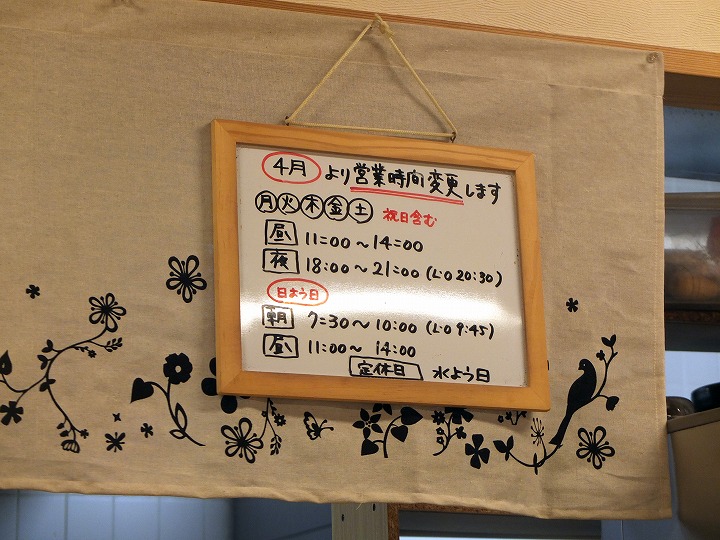 4月より営業時間変更します
月火木金土 祝日含む
昼 11:00〜14:00
夜 18:00〜21:00(L:O 20:30)
日よう日
朝 7:30〜10:00(L:O 9:45)
昼 11:00〜14:00
定休日 水よう日